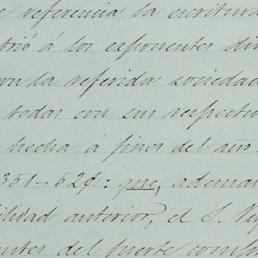 referencia la escritura
á los exponentes
la referida sociedad
todas con sus respectiv
hecha á fines del año
351-52 : que, ademas
ilidad anterior, el S.
del puerto comp